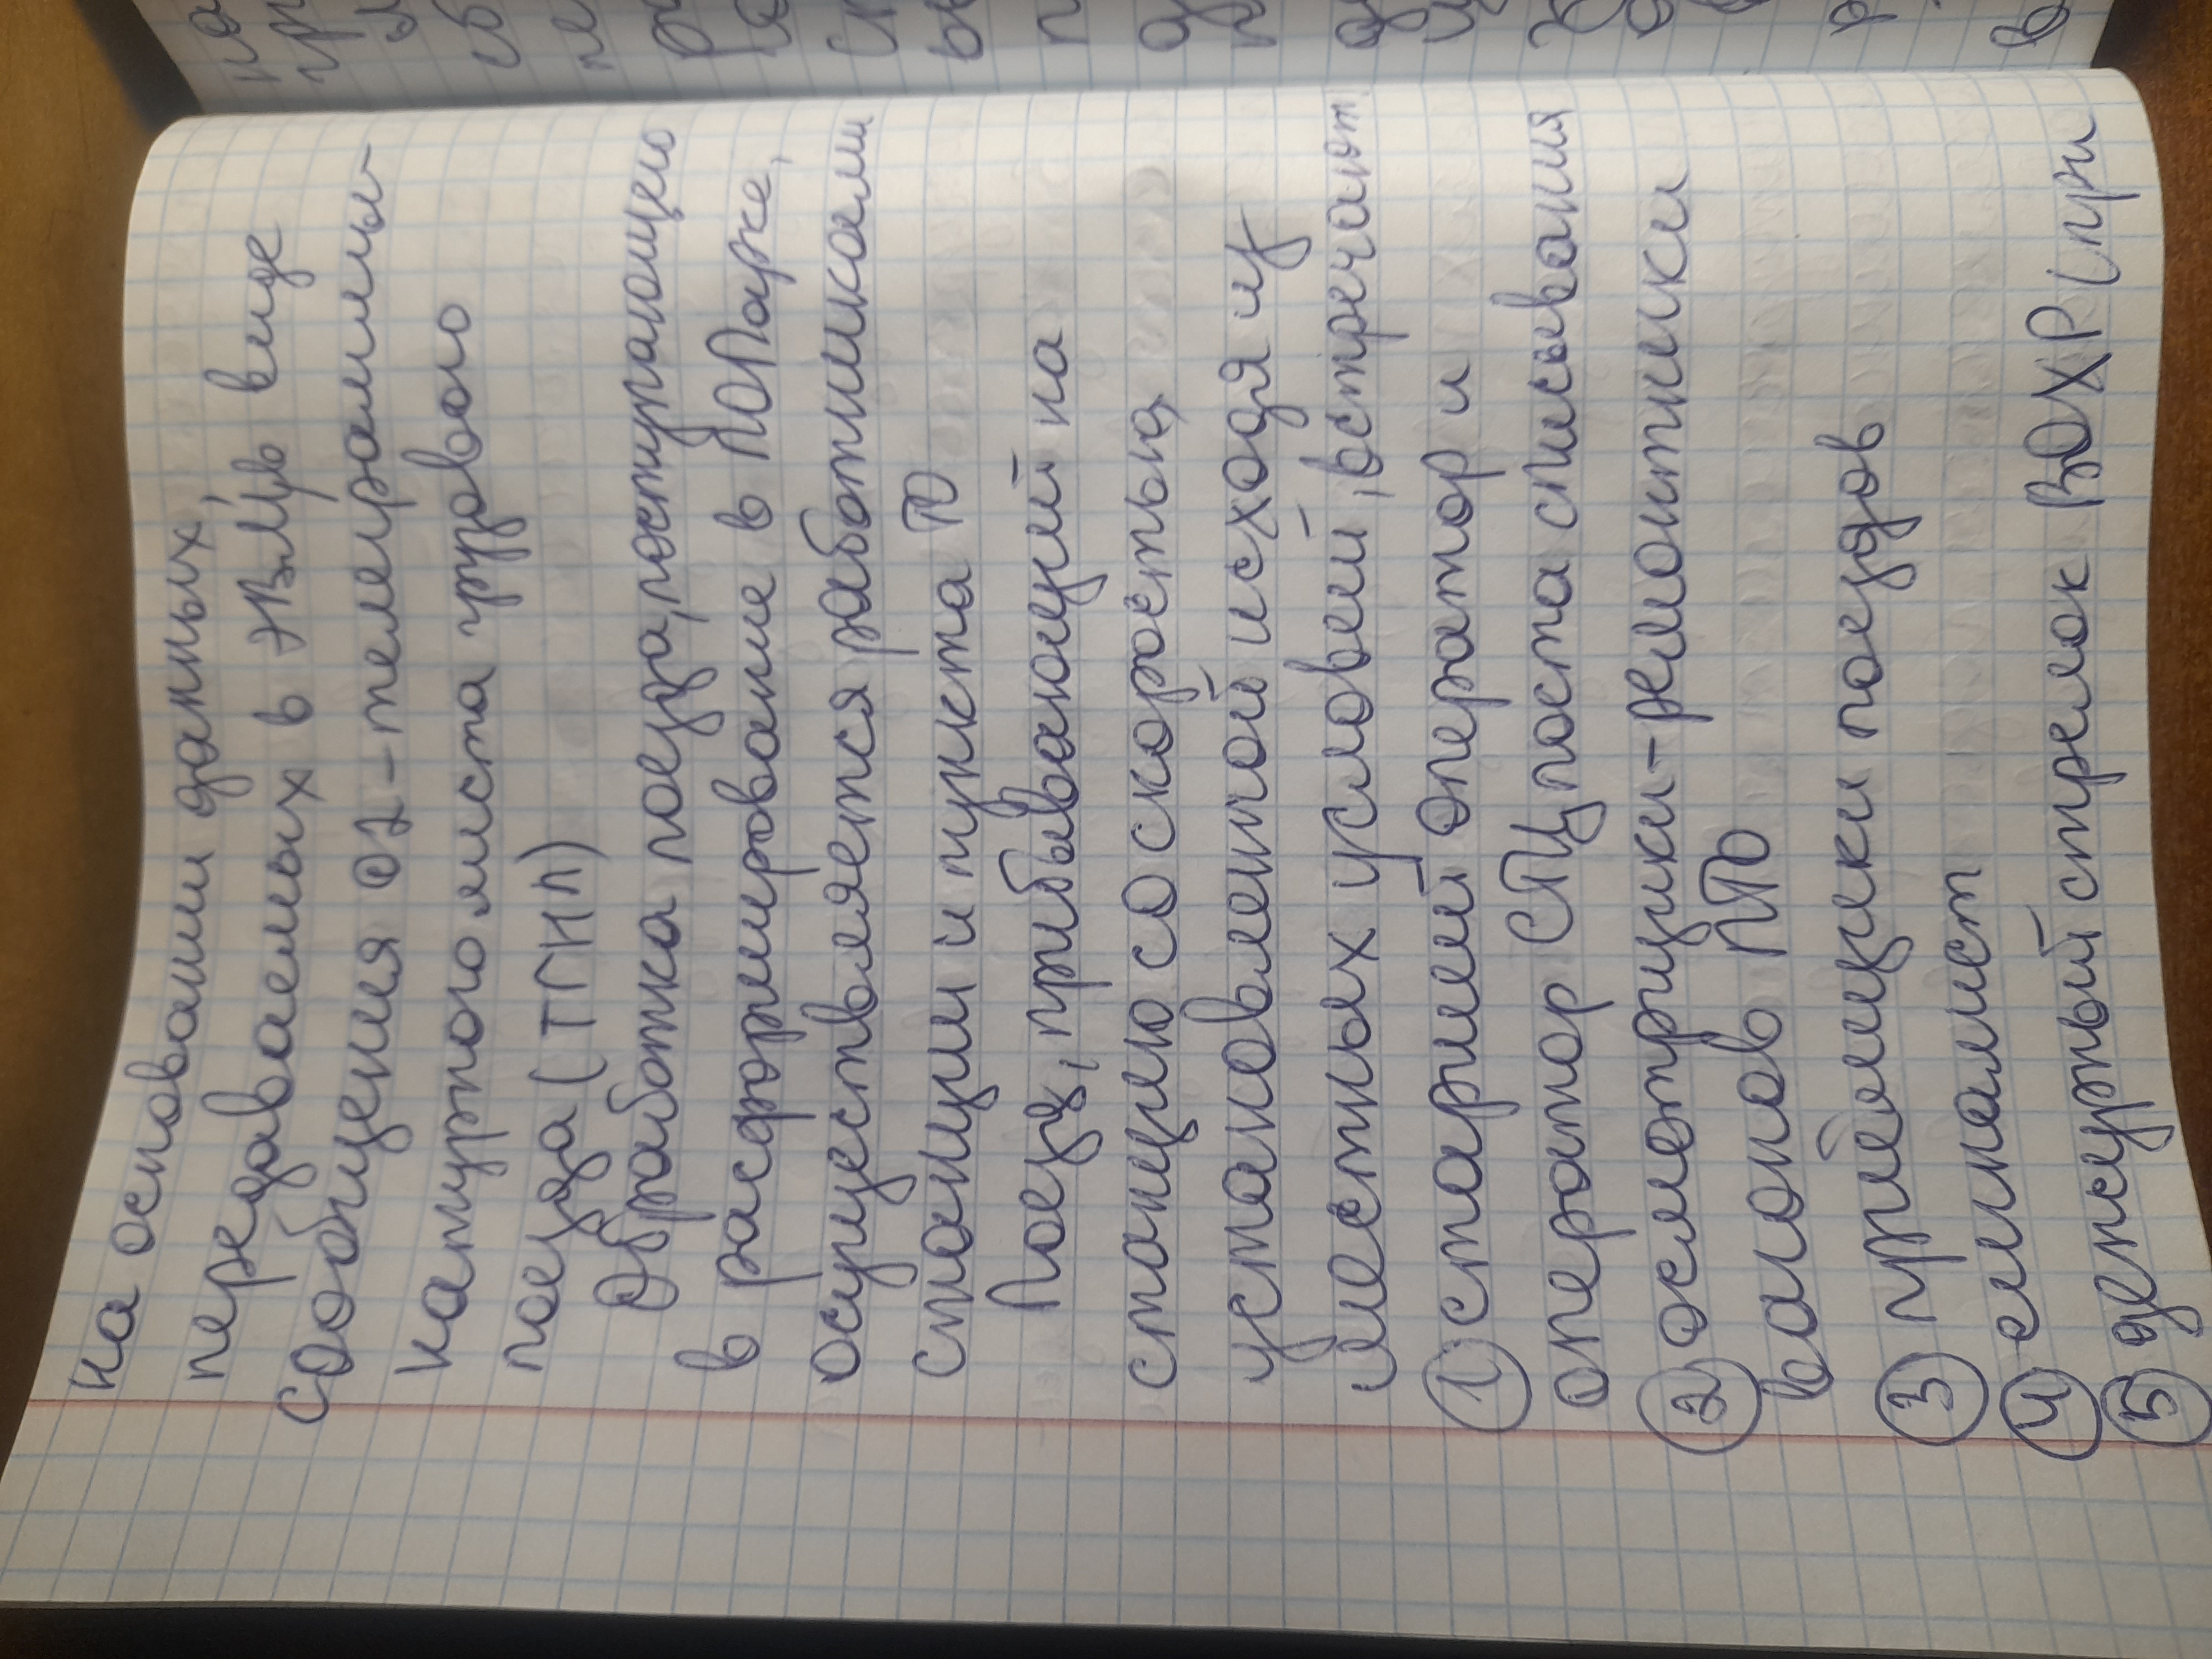 на основании данных,
передаваемых в ЭВМ, в виде
сообщения 02-телеграммы-
натурного листа грузового
поезда (ТГНЛ)
Обработка поезда, поступающего
в расформирование в ПОПарке,
осуществляется работниками
станции и пункта ТО
Поезд, прибывающий на
станцию со скоростью,
установленной исходя из
местных условий, встречают
① старший оператор и
оператор СТЦ поста списывания
② осмотрщики-ремонтники
вагонов ПТО
③ приёмщики поездов
④ сигналист
⑤ дежурный стрелок ВОХР (при